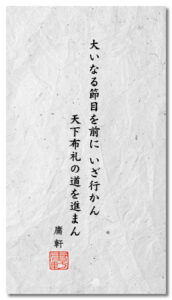 大いなる節目を前に いざ行かん
天下布礼の道を進まん
庸軒